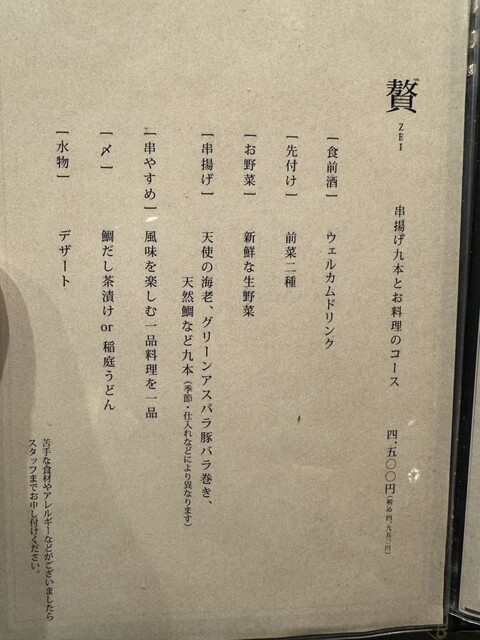 贅
ZEI
串揚げ九本とお料理のコース
四、五〇〇円(税込 四、九五〇円)
[食前酒] ウェルカムドリンク
[先付け] 前菜二種
[お野菜] 新鮮な生野菜
[串揚げ] 天使の海老、グリーンアスパラ豚バラ巻き、
天然鯛など九本(季節・仕入れなどにより異なります)
[串やすめ] 風味を楽しむ一品料理を一品
[〆] 鯛だし茶漬け or 稲庭うどん
[水物] デザート
苦手な食材やアレルギーなどがございましたら
スタッフまでお申し付けください。